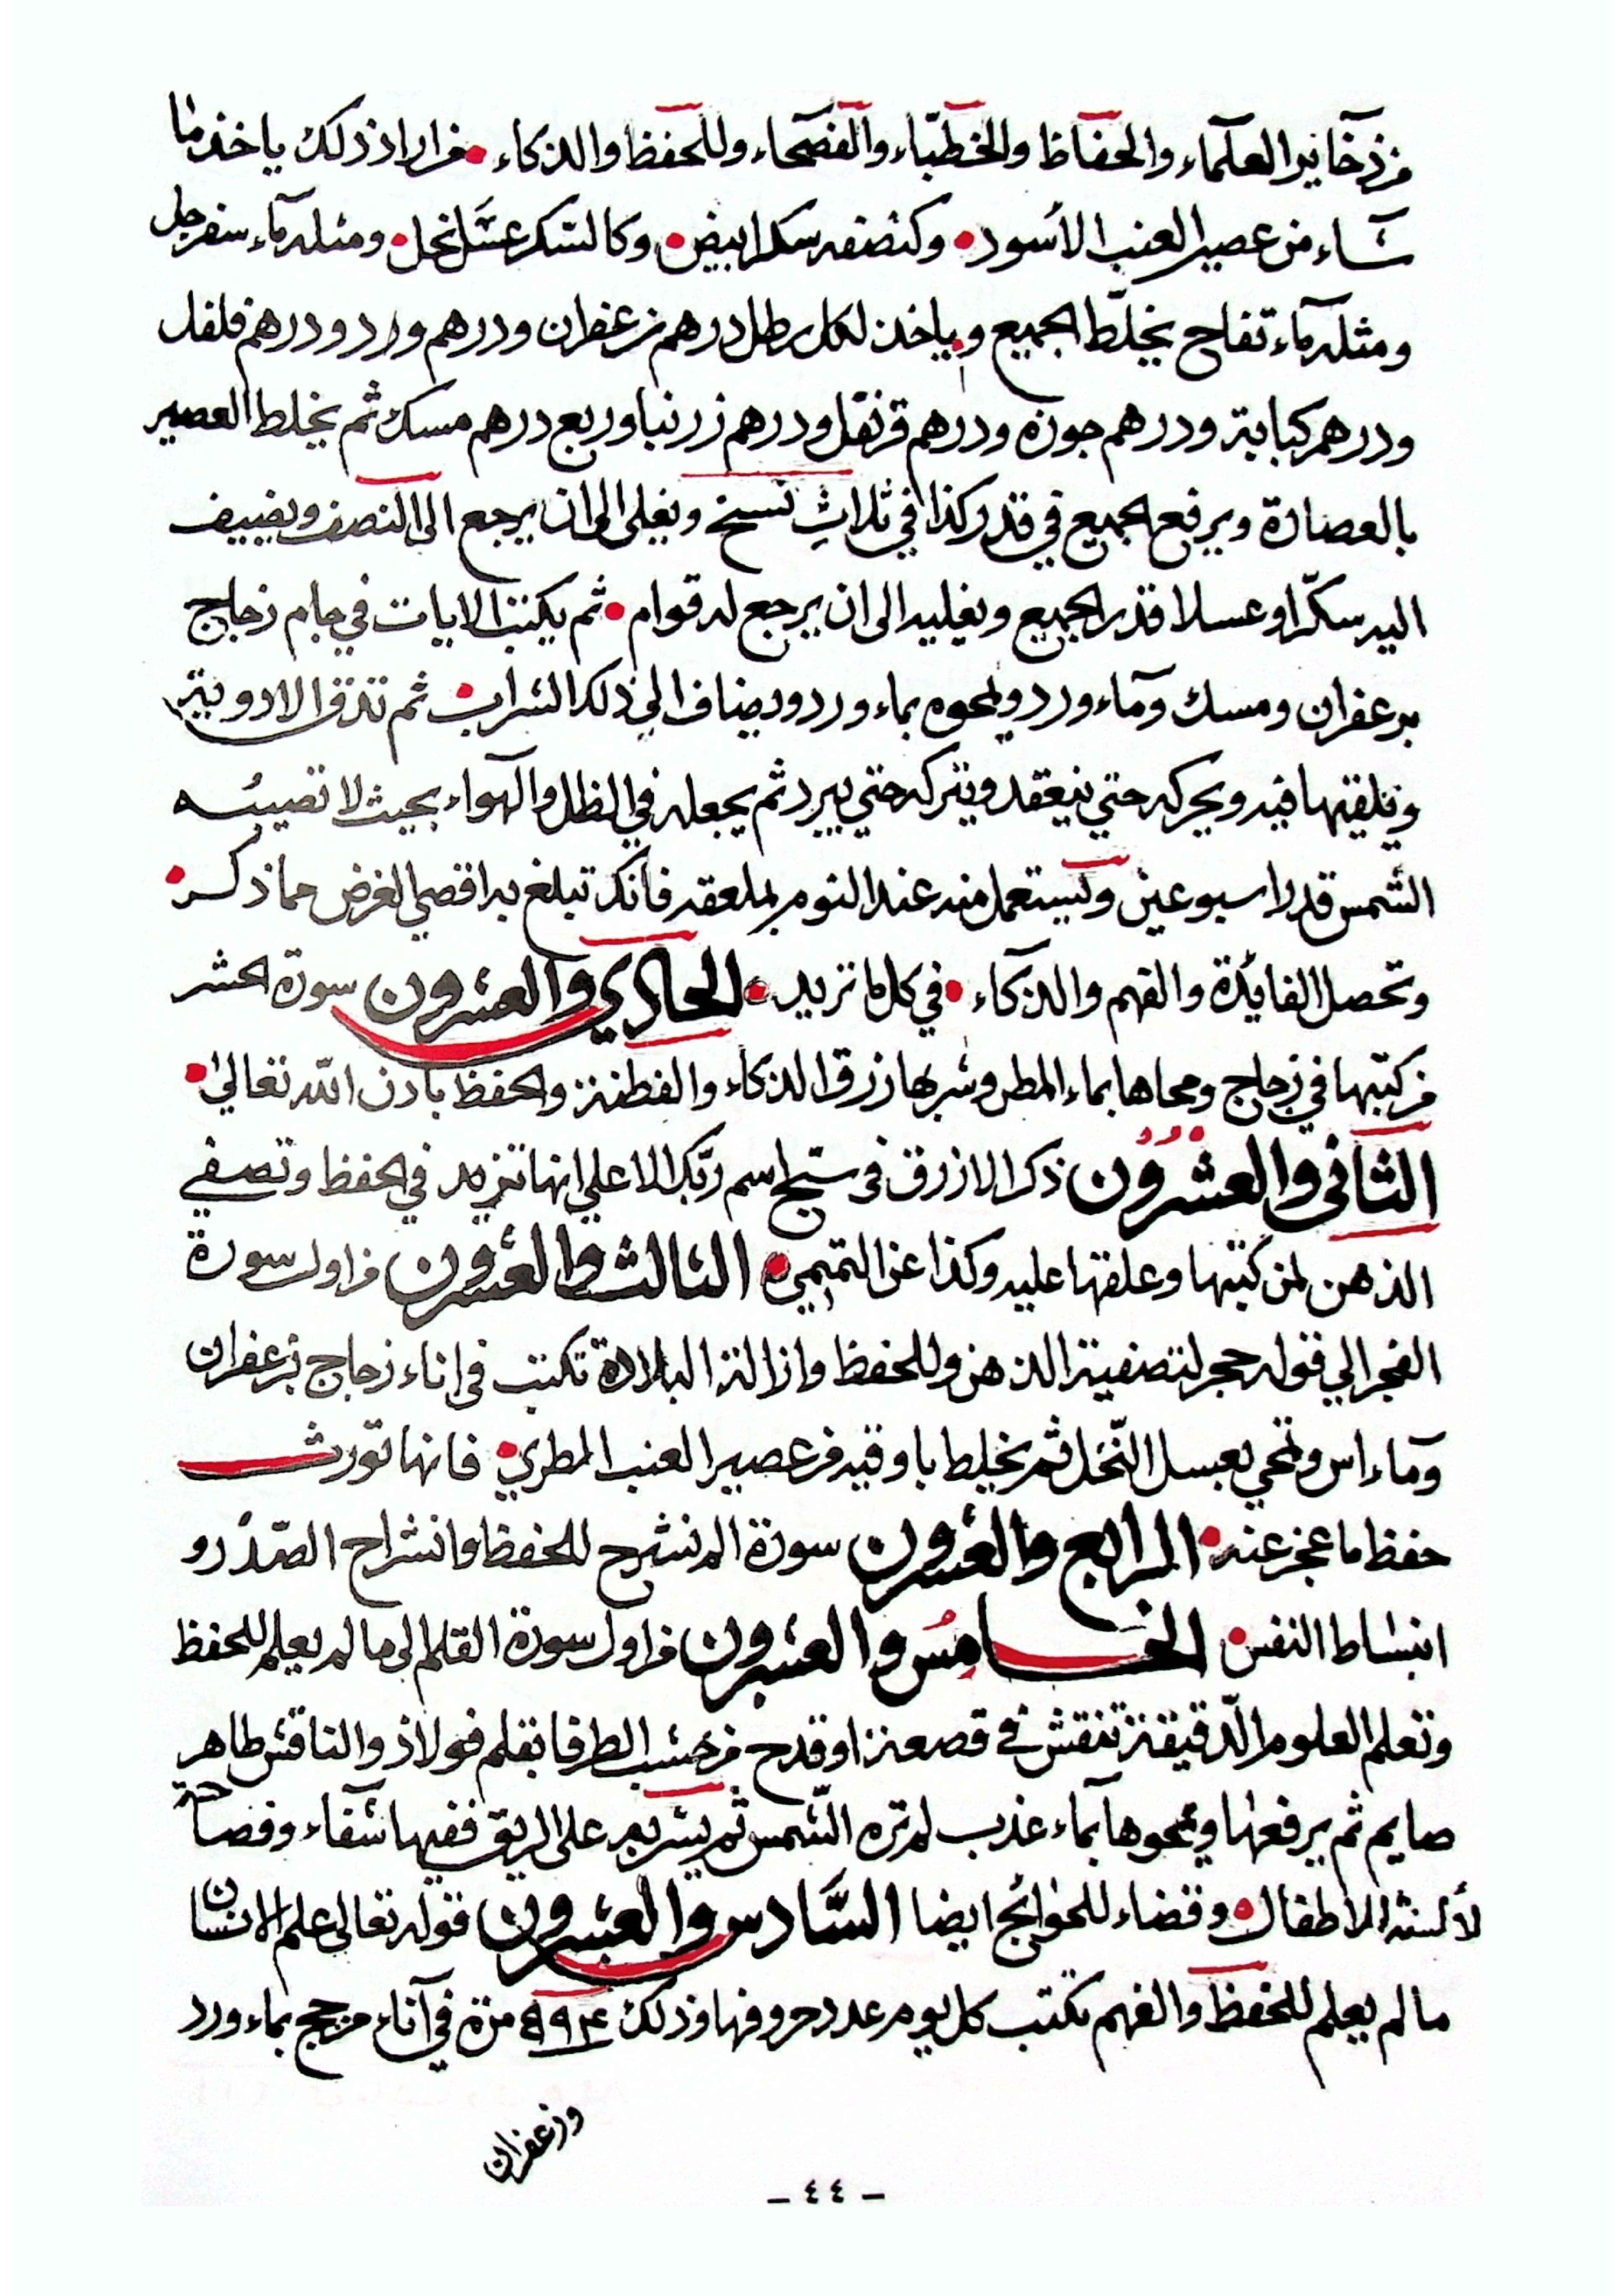 من ذخاير العلماء والحفاظ والخطباء والفصحاء وللحفظ والذكاء • فمن اراد ذلك ياخذ ما
شاء من عصير العنب الأسود • وكنصفه سكر ابيض • وكالسكر عسل نحل • ومثله ماء سفرجل
ومثله ماء تفاح يخلط الجميع وياخذ لكل رطل درهم زعفران ودرهم ورد ودرهم فلفل
ودرهم كبابة ودرهم جوزه ودرهم قرنفل ودرهم زرنبا وربع درهم مسك ثم يخلط العصير
بالعصارة ويرفع الجميع في قدر كذا في ثلاث نسخ ويغلى الى ان يرجع الى النصف ويضيف
اليه سكرا وعسلا قدر الجميع ويغليه الى ان يرجع له قوام • ثم يكتب الايات في جام زجاج
بزعفران ومسك وماء ورد ويمحوه بماء ورد ويضاف الي ذلك الشراب • ثم تدق الادوية
وتلقيها فيه ويحركه حتي ينعقد ويتركه حتي يبرد ثم يجعله في الظل والهواء بحيث لا تصيبه
الشمس قدر اسبوعين ويستعمل منه عند النوم بملعقه فانك تبلغ به اقصي الغرض مما ذكر •
وتحصل الفايدة والفهم والذكاء • في كل ما تريد • الحادي والعشرون سورة الحشر
من كتبها في زجاج ومحاها بماء المطر وشربها رزق الذكاء والفطنة والحفظ باذن الله تعالي •
الثاني والعشرون ذكر الازرق في سبح اسم ربك الاعلي انها تزيد في الحفظ وتصفي
الذهن لمن كتبها وعلقها عليه وكذا عن التميمي • الثالث والعشرون من اول سورة
الفجر الي قوله حجر لتصفية الذهن وللحفظ وازالة البلادة تكتب في اناء زجاج بزعفران
وماء اس وتمحي بعسل النحل ثم يخلط باوقيه من عصير العنب المطري • فانها تورث
حفظ ما عجز عنه • الرابع والعشرون سورة الم نشرح للحفظ وانشراح الصدر و
انبساط النفس • الخامس والعشرون من اول سورة القلم الى ما لم يعلم للحفظ
وتعلم العلوم الدقيقة تنقش في قصعة او قدح من خشب الطرفا بقلم فولاذ والناقش طاهر
صايم ثم يرفعها ويمحوها بماء عذب لم تره الشمس ثم يشربه على الريق ففيها شفاء وفصاحة
لألسنة الاطفال • وقضاء للحوائج ايضا السادس والعشرون قوله تعالى علم الانسان
ما لم يعلم للحفظ والفهم تكتب كل يوم عدد حروفها وذلك مرة في اناء مزجج بماء ورد
وزعفران
- ٤٤ -